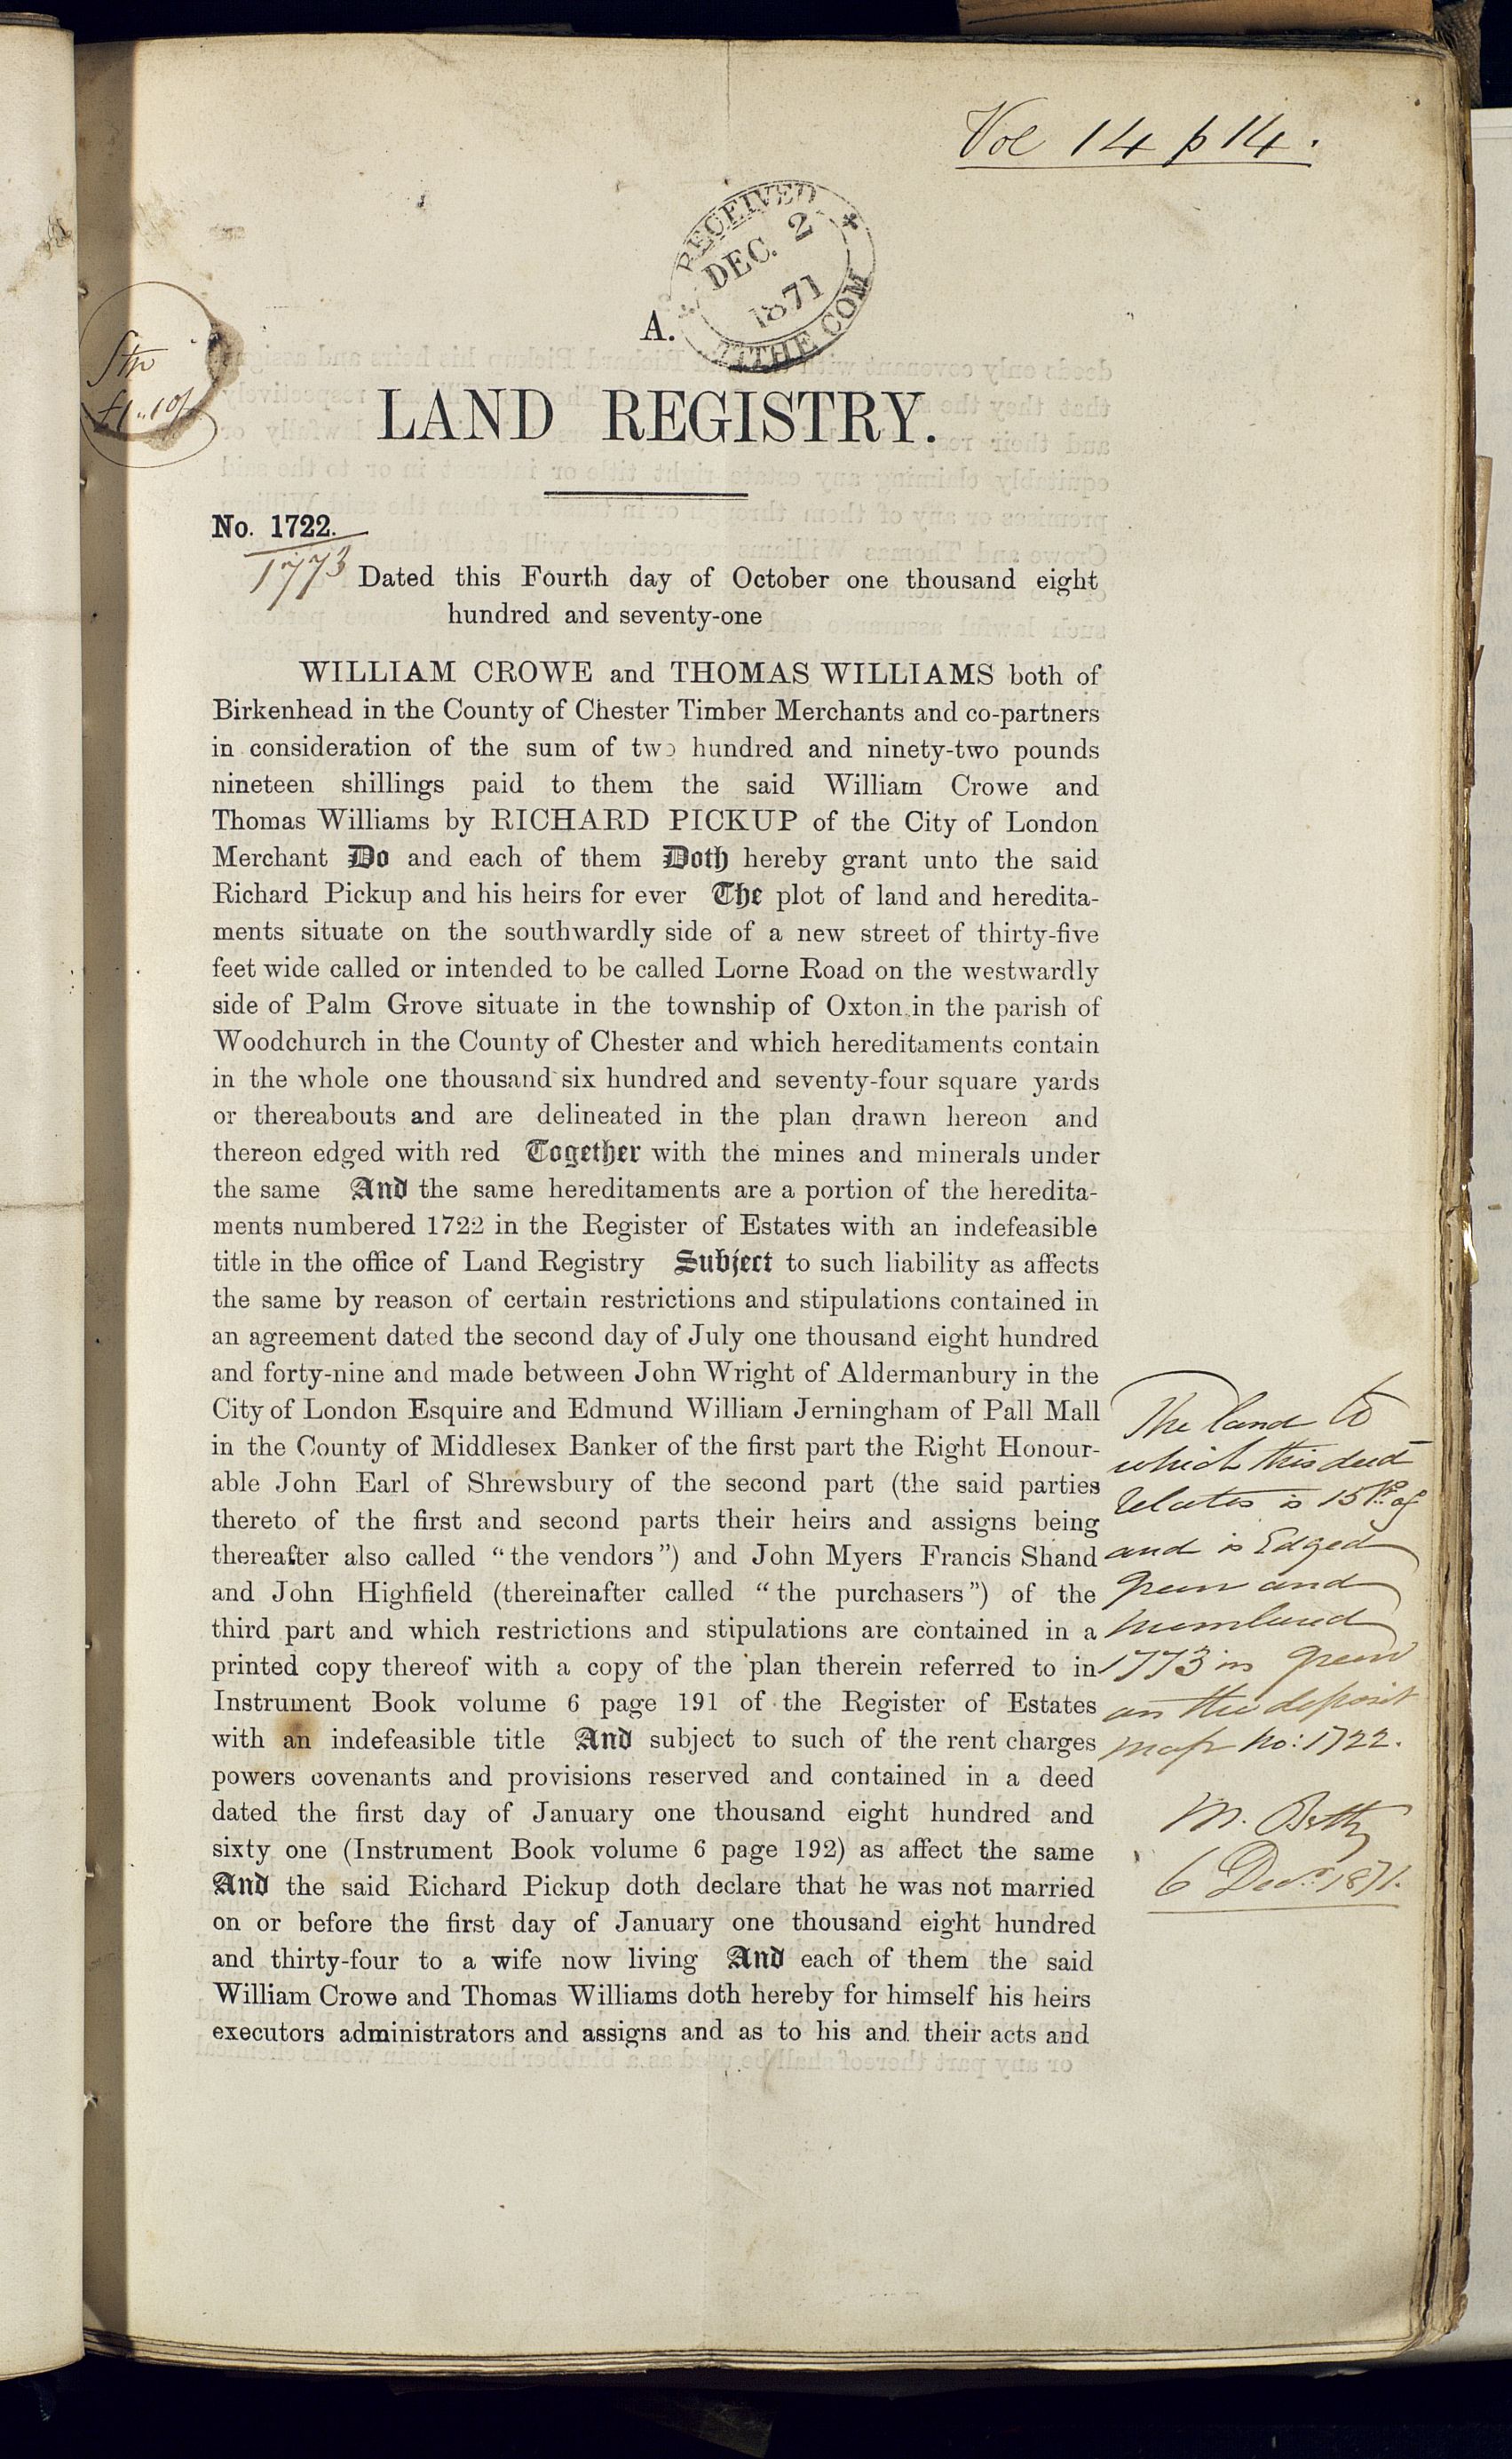 Vol 14 p 14.
RECEIVED
DEC. 2
1871
TITHE COM
A.
Stp
£1"10/
LAND REGISTRY.
No. 1722.
1773
Dated this Fourth day of October one thousand eight
hundred and seventy-one
WILLIAM CROWE and THOMAS WILLIAMS both of
Birkenhead in the County of Chester Timber Merchants and co-partners
in consideration of the sum of two hundred and ninety-two pounds
nineteen shillings paid to them the said William Crowe and
Thomas Williams by RICHARD PICKUP of the City of London
Merchant Do and each of them Doth hereby grant unto the said
Richard Pickup and his heirs for ever The plot of land and heredita-
ments situate on the southwardly side of a new street of thirty-five
feet wide called or intended to be called Lorne Road on the westwardly
side of Palm Grove situate in the township of Oxton in the parish of
Woodchurch in the County of Chester and which hereditaments contain
in the whole one thousand six hundred and seventy-four square yards
or thereabouts and are delineated in the plan drawn hereon and
thereon edged with red Together with the mines and minerals under
the same And the same hereditaments are a portion of the heredita-
ments numbered 1722 in the Register of Estates with an indefeasible
title in the office of Land Registry Subject to such liability as affects
the same by reason of certain restrictions and stipulations contained in
an agreement dated the second day of July one thousand eight hundred
and forty-nine and made between John Wright of Aldermanbury in the
City of London Esquire and Edmund William Jerningham of Pall Mall
in the County of Middlesex Banker of the first part the Right Honour-
able John Earl of Shrewsbury of the second part (the said parties
thereto of the first and second parts their heirs and assigns being
thereafter also called "the vendors") and John Myers Francis Shand
and John Highfield (thereinafter called "the purchasers") of the
third part and which restrictions and stipulations are contained in a
printed copy thereof with a copy of the plan therein referred to in
Instrument Book volume 6 page 191 of the Register of Estates
with an indefeasible title And subject to such of the rent charges
powers covenants and provisions reserved and contained in a deed
dated the first day of January one thousand eight hundred and
sixty one (Instrument Book volume 6 page 192) as affect the same
And the said Richard Pickup doth declare that he was not married
on or before the first day of January one thousand eight hundred
and thirty-four to a wife now living And each of them the said
William Crowe and Thomas Williams doth hereby for himself his heirs
executors administrators and assigns and as to his and their acts and
The land to
which this deed
relates is 15 of
and is Edged
green and
numbered
1773 in green
on the deposit
map No: 1722.
M. Betty
6 Decr. 1871.